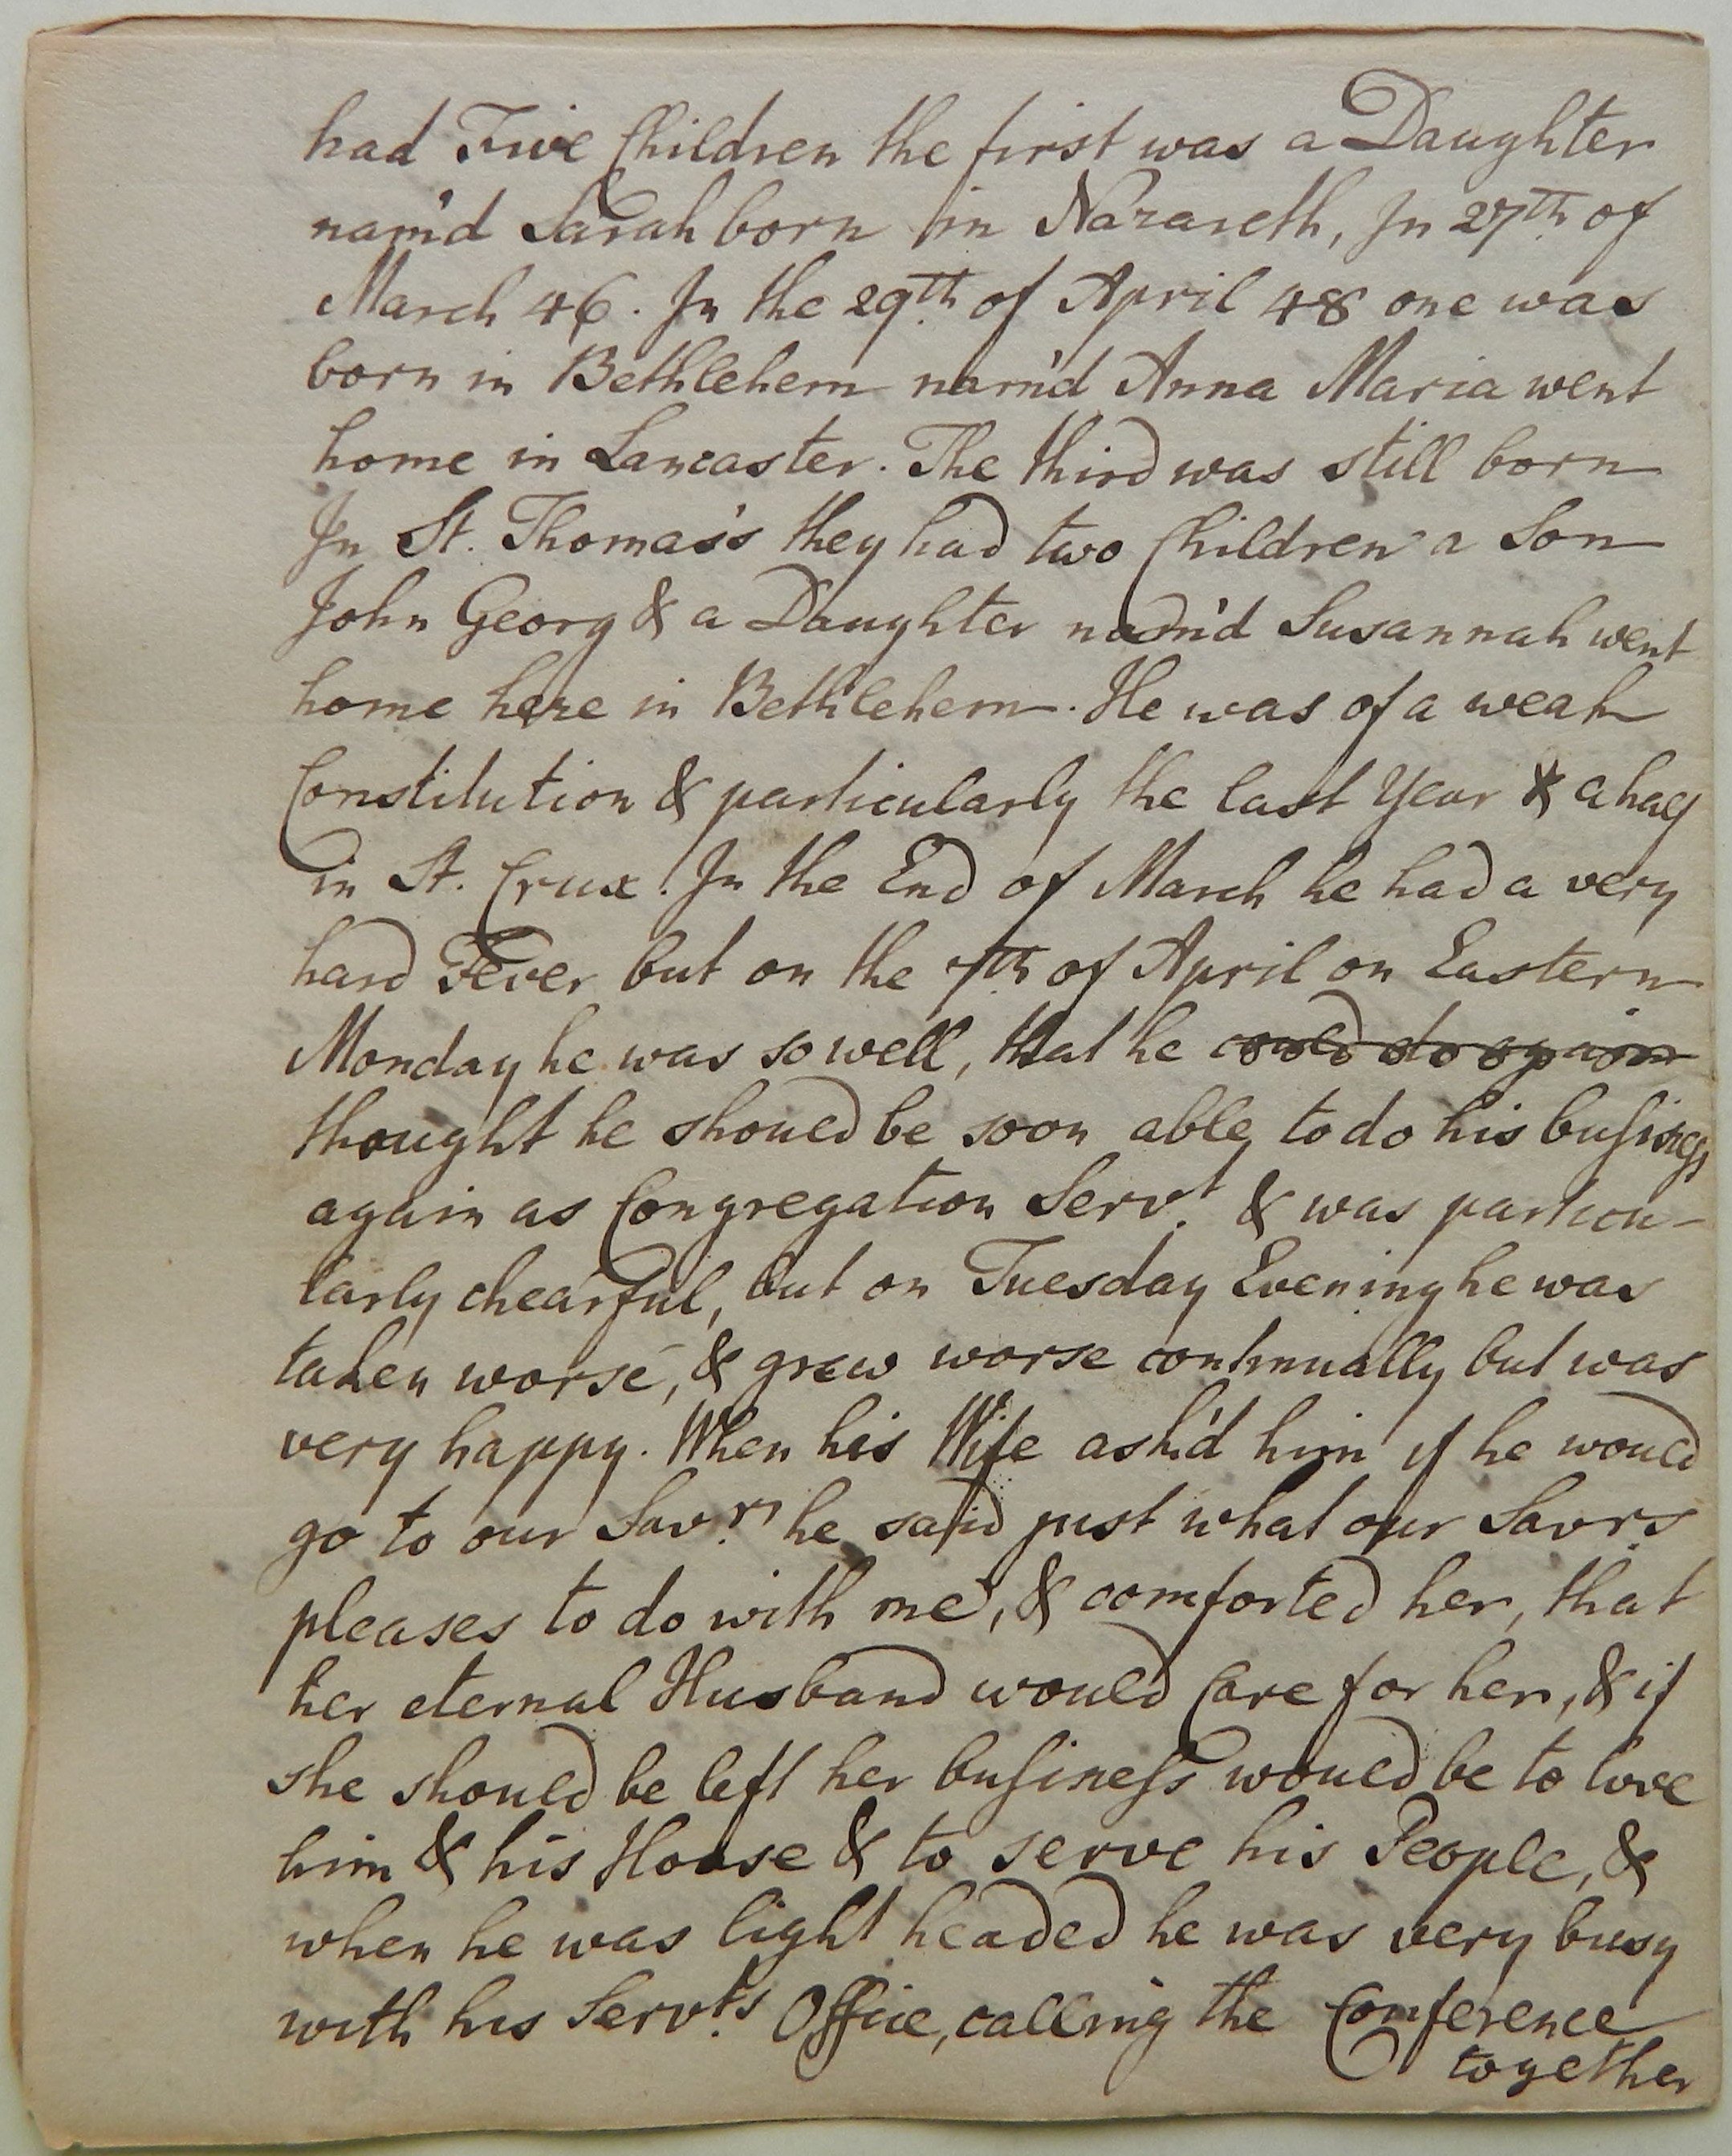 had Five Children the first was a Daughter
nam'd Sarah born in Nazareth, In 27th of
March 46. In the 29th of April 48 one was
born in Bethlehem nam'd Anna Maria went
home in Lancaster. The third was still born
In St. Thomas's they had two Children a Son
John Georg & a Daughter nam'd Susannah went
home here in Bethlehem. He was of a weak
Constitution & particularly the last Year & a half
in St. Crux. In the End of March he had a very
hard Fever but on the 7th of April on Eastern
Monday he was so well, that he could do again
thought he should be soon able to do his busineſs
again as Congregation Servt. & was particu-
larly chearful, but on Tuesday Evening he was
taken worse, & grew worse continually but was
very happy. When his Wife ask'd him if he would
go to our Savr. he said just what our Savr.
pleases to do with me, & comforted her, that
her eternal Husband would Care for her, & if
she should be left her busineſs would be to love
him & his House & to serve his People, &
when he was light headed he was very busy
with his Servt.s Office, calling the Conference
together